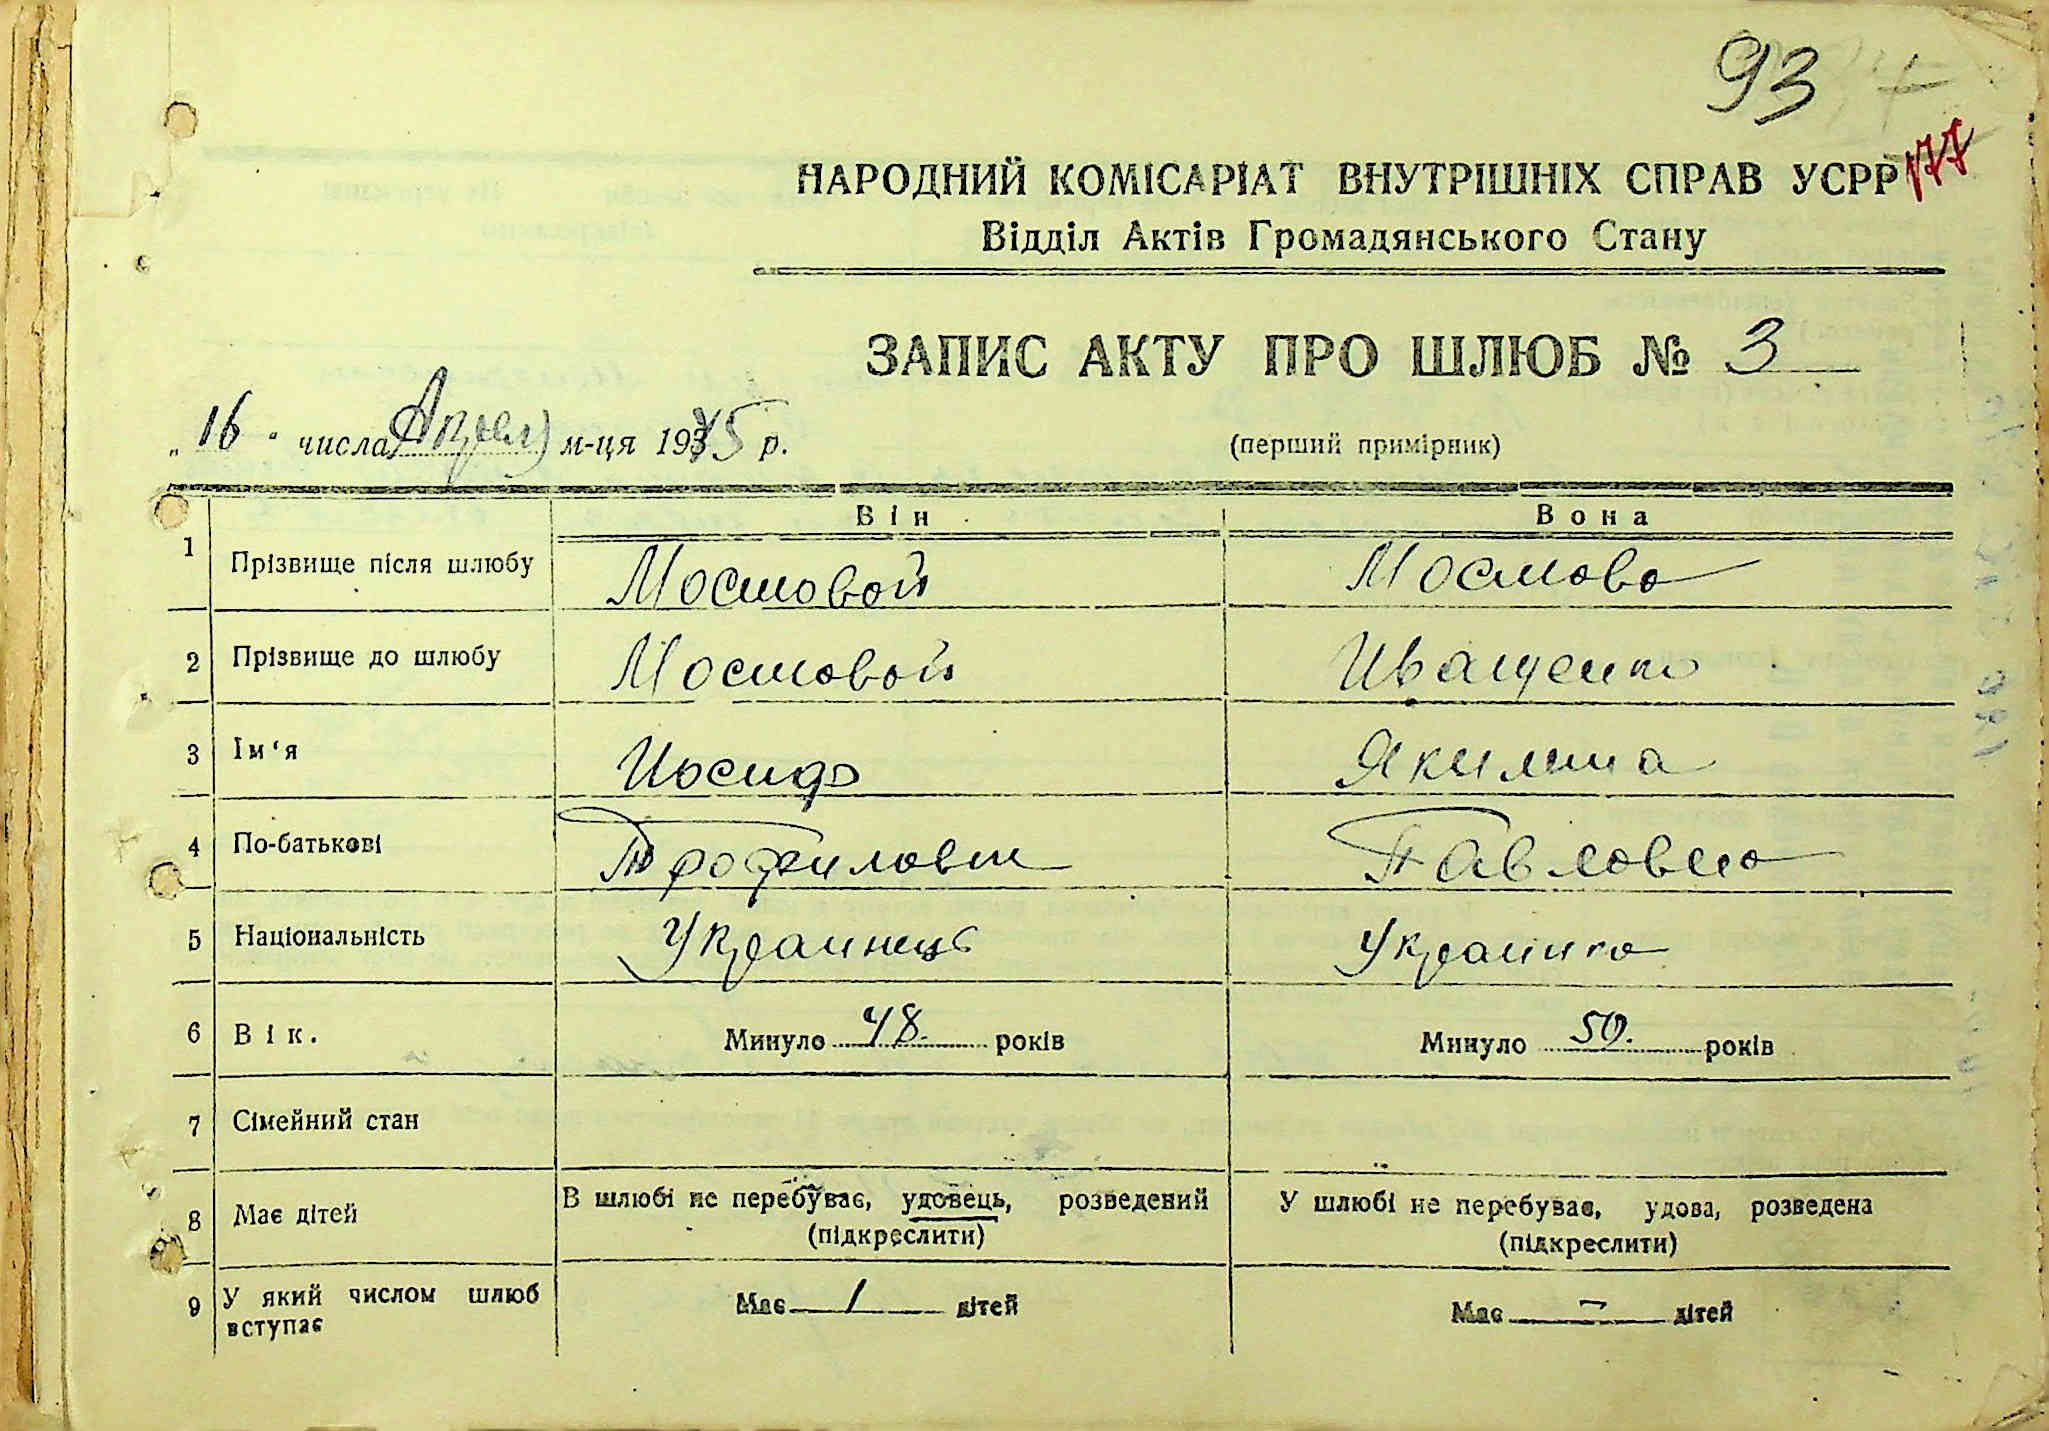 93
177
НАРОДНИЙ КОМІСАРІАТ ВНУТРІШНІХ СПРАВ УСРР
Відділ Актів Громадянського Стану
ЗАПИС АКТУ ПРО ШЛЮБ № 3
„ 16 " числа Апреля м-ця 1945 р.
(перший примірник)
Він Вона
1 Прізвище після шлюбу Мостовой Мостова
2 Прізвище до шлюбу Мостовой Иващенко
3 Ім'я Иосиф Якилина
4 По-батькові Трофимович Павловна
5 Національність Украинець Украинка
6 Вік. Минуло 48. років Минуло 50. років
7 Сімейний стан
8 Має дітей В шлюбі не перебуває, удовець, розведений У шлюбі не перебуває, удова, розведена
(підкреслити) (підкреслити)
9 У який числом шлюб вступає Має 1 дітей Має — дітей